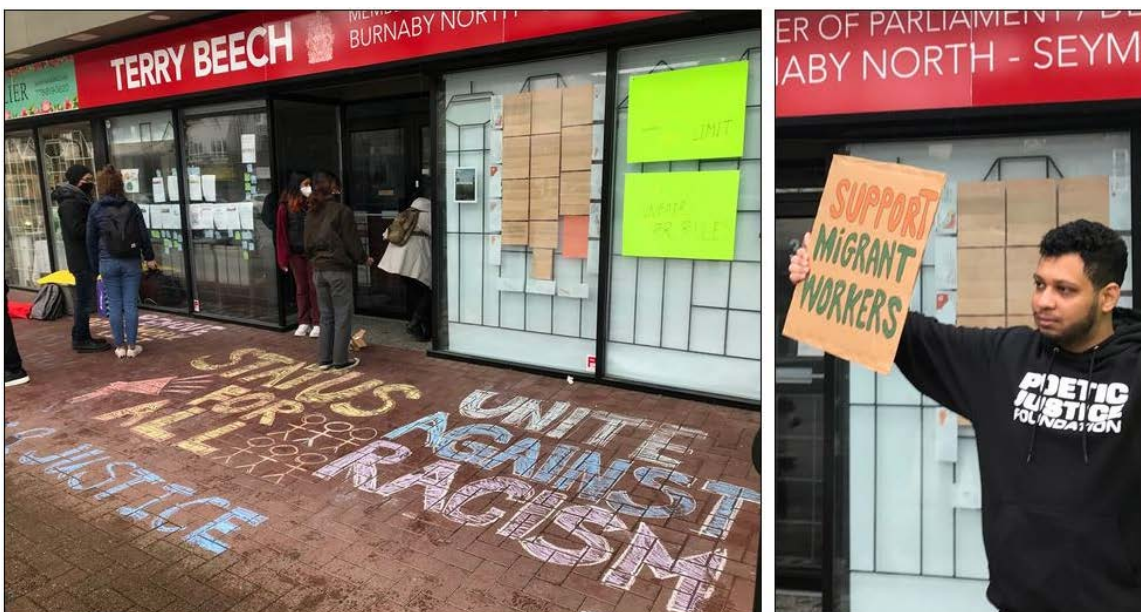 TERRY BEECH
BURNABY NORTH
LIER
LIMIT
STATUS
FOR
ALL
JUSTICE
UNITE
AGAINST
RACISM
ER OF PARLIAMENT /
NABY NORTH - SEYM
SUPPORT
MIGRANT
WORKERS
POETIC
JUSTICE
FOUNDATION